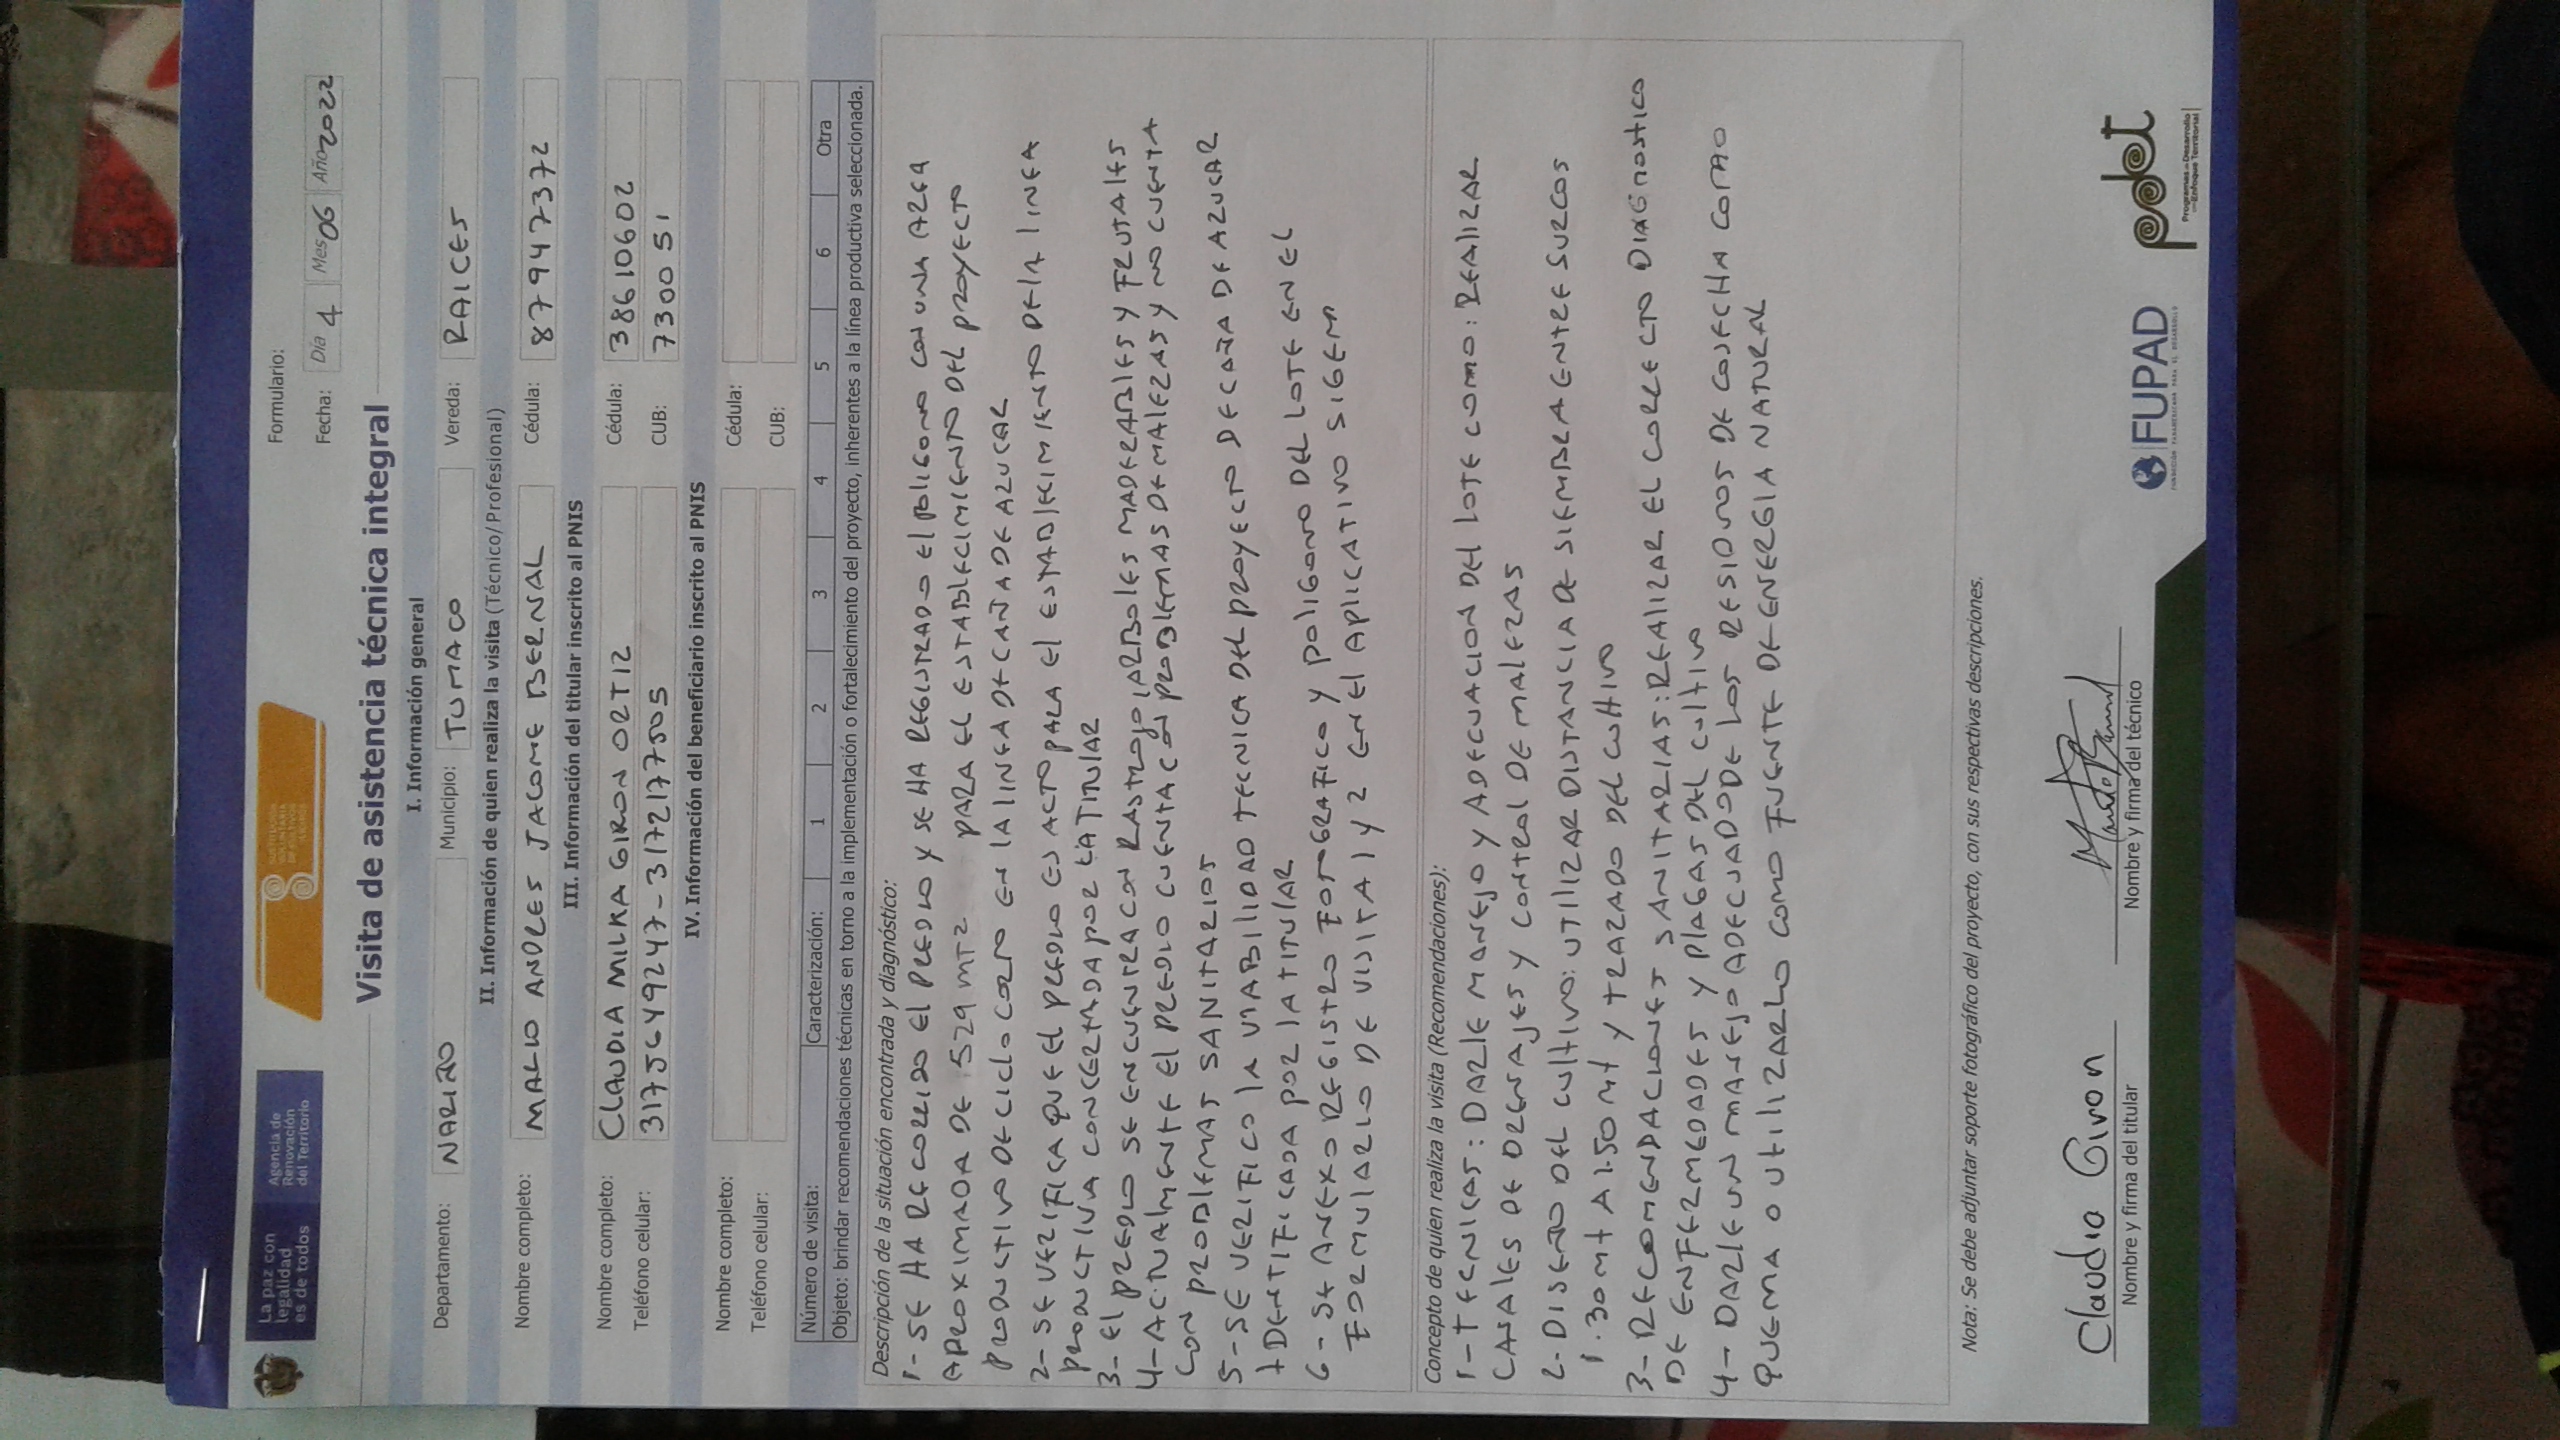 La paz con
legalidad
es de todos
Agencia de
Renovación
del Territorio
SUSTITUCIÓN
VOLUNTARIA
DE CULTIVOS
ILÍCITOS
Formulario:
Fecha: Día 4 Mes 06 Año 2022
Visita de asistencia técnica integral
I. Información general
Departamento: NARIÑO Municipio: TUMACO Vereda: RAICES
II. Información de quien realiza la visita (Técnico/Profesional)
Nombre completo: ANDRES JACOME BERNAL Cédula: 87947372
III. Información del titular inscrito al PNIS
Nombre completo: CLAUDIA MILKA GIRON ORTIZ Cédula: 38610602
Teléfono celular: 3175649247-3172177505 CUB: 730051
IV. Información del beneficiario inscrito al PNIS
Nombre completo: Cédula:
Teléfono celular: CUB:
Número de visita: Caracterización: 1 2 3 4 5 6 Otra
Objeto: brindar recomendaciones técnicas en torno a la implementación o fortalecimiento del proyecto, inherentes a la línea productiva seleccionada.
Descripción de la situación encontrada y diagnóstico:
1- SE HA RECORRIDO EL PREDIO Y SE HA REGISTRADO El POLIGONO CON UNA AREA
APROXIMADA DE 529 MT2 PARA EL ESTABLECIMIENTO DEL PROYECTO
PRODUCTIVO DE CICLO CORTO EN LA LINEA DE CAÑA DE AZUCAR
2- SE VERIFICA QUE El PREDIO ES ACTO PARA El ESTABLECIMIENTO DE lA LINEA
PRODUCTIVA CONCERTADA POR LA TITULAR
3- El PREDIO SE ENCUENTRA CON RASTROJO, ARBOLES MADERABLES Y FRUTALES
4- ACTUALMENTE El PREDIO CUENTA CON PROBLEMAS DE MALEZAS Y NO CUENTA
CON PROBLEMAS SANITARIOS
5- SE VERIFICO lA VIABILIDAD TECNICA DEL PROYECTO DE CAÑA DE AZUCAR
IDENTIFICADA POR lA TITULAR
6- SE ANEXO REGISTRO FOTOGRAFICO Y POLIGONO DEL LOTE EN EL
FORMULARIO DE VISITA 1 Y 2 EN El APLICATIVO SIGEM
Concepto de quien realiza la visita (Recomendaciones):
1- TECNICAS: DARLE MANEJO Y ADECUACION DEL LOTE COMO: REALIZAR
CANALES DE DRENAJES Y CONTROL DE MALEZAS
2- DISEÑO DEL CULTIVO: UTILIZAR DISTANCIA DE SIEMBRA ENTRE SURCOS
1.30 mt A 1.50 mt Y TRAZADO DEL CULTIVO
3- RECOMENDACIONES SANITARIAS: REALIZAR EL CORRECTO DIAGNOSTICO
DE ENFERMEDADES Y PLAGAS DEL CULTIVO
4- DARLE UN MANEJO ADECUADO DE LOS RESIDUOS DE COSECHA COMO
QUEMA O UTILIZARLO COMO FUENTE DE ENERGIA NATURAL
Nota: Se debe adjuntar soporte fotográfico del proyecto, con sus respectivas descripciones.
Claudia Giron
Nombre y firma del titular
Nombre y firma del técnico
FUPAD
FUNDACIÓN PANAMERICANA PARA EL DESARROLLO
pdet
Programas de Desarrollo
con Enfoque Territorial